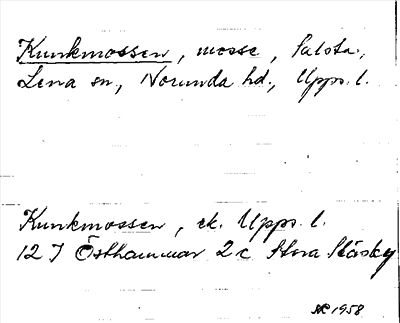 Kunkmossen, mosse, Salsta,
Lena sn, Norunda hd., Upps. l.
Kunkmossen, ek. Upps. l.
12 I Östhammar 2 c Stora Stäsby
1958